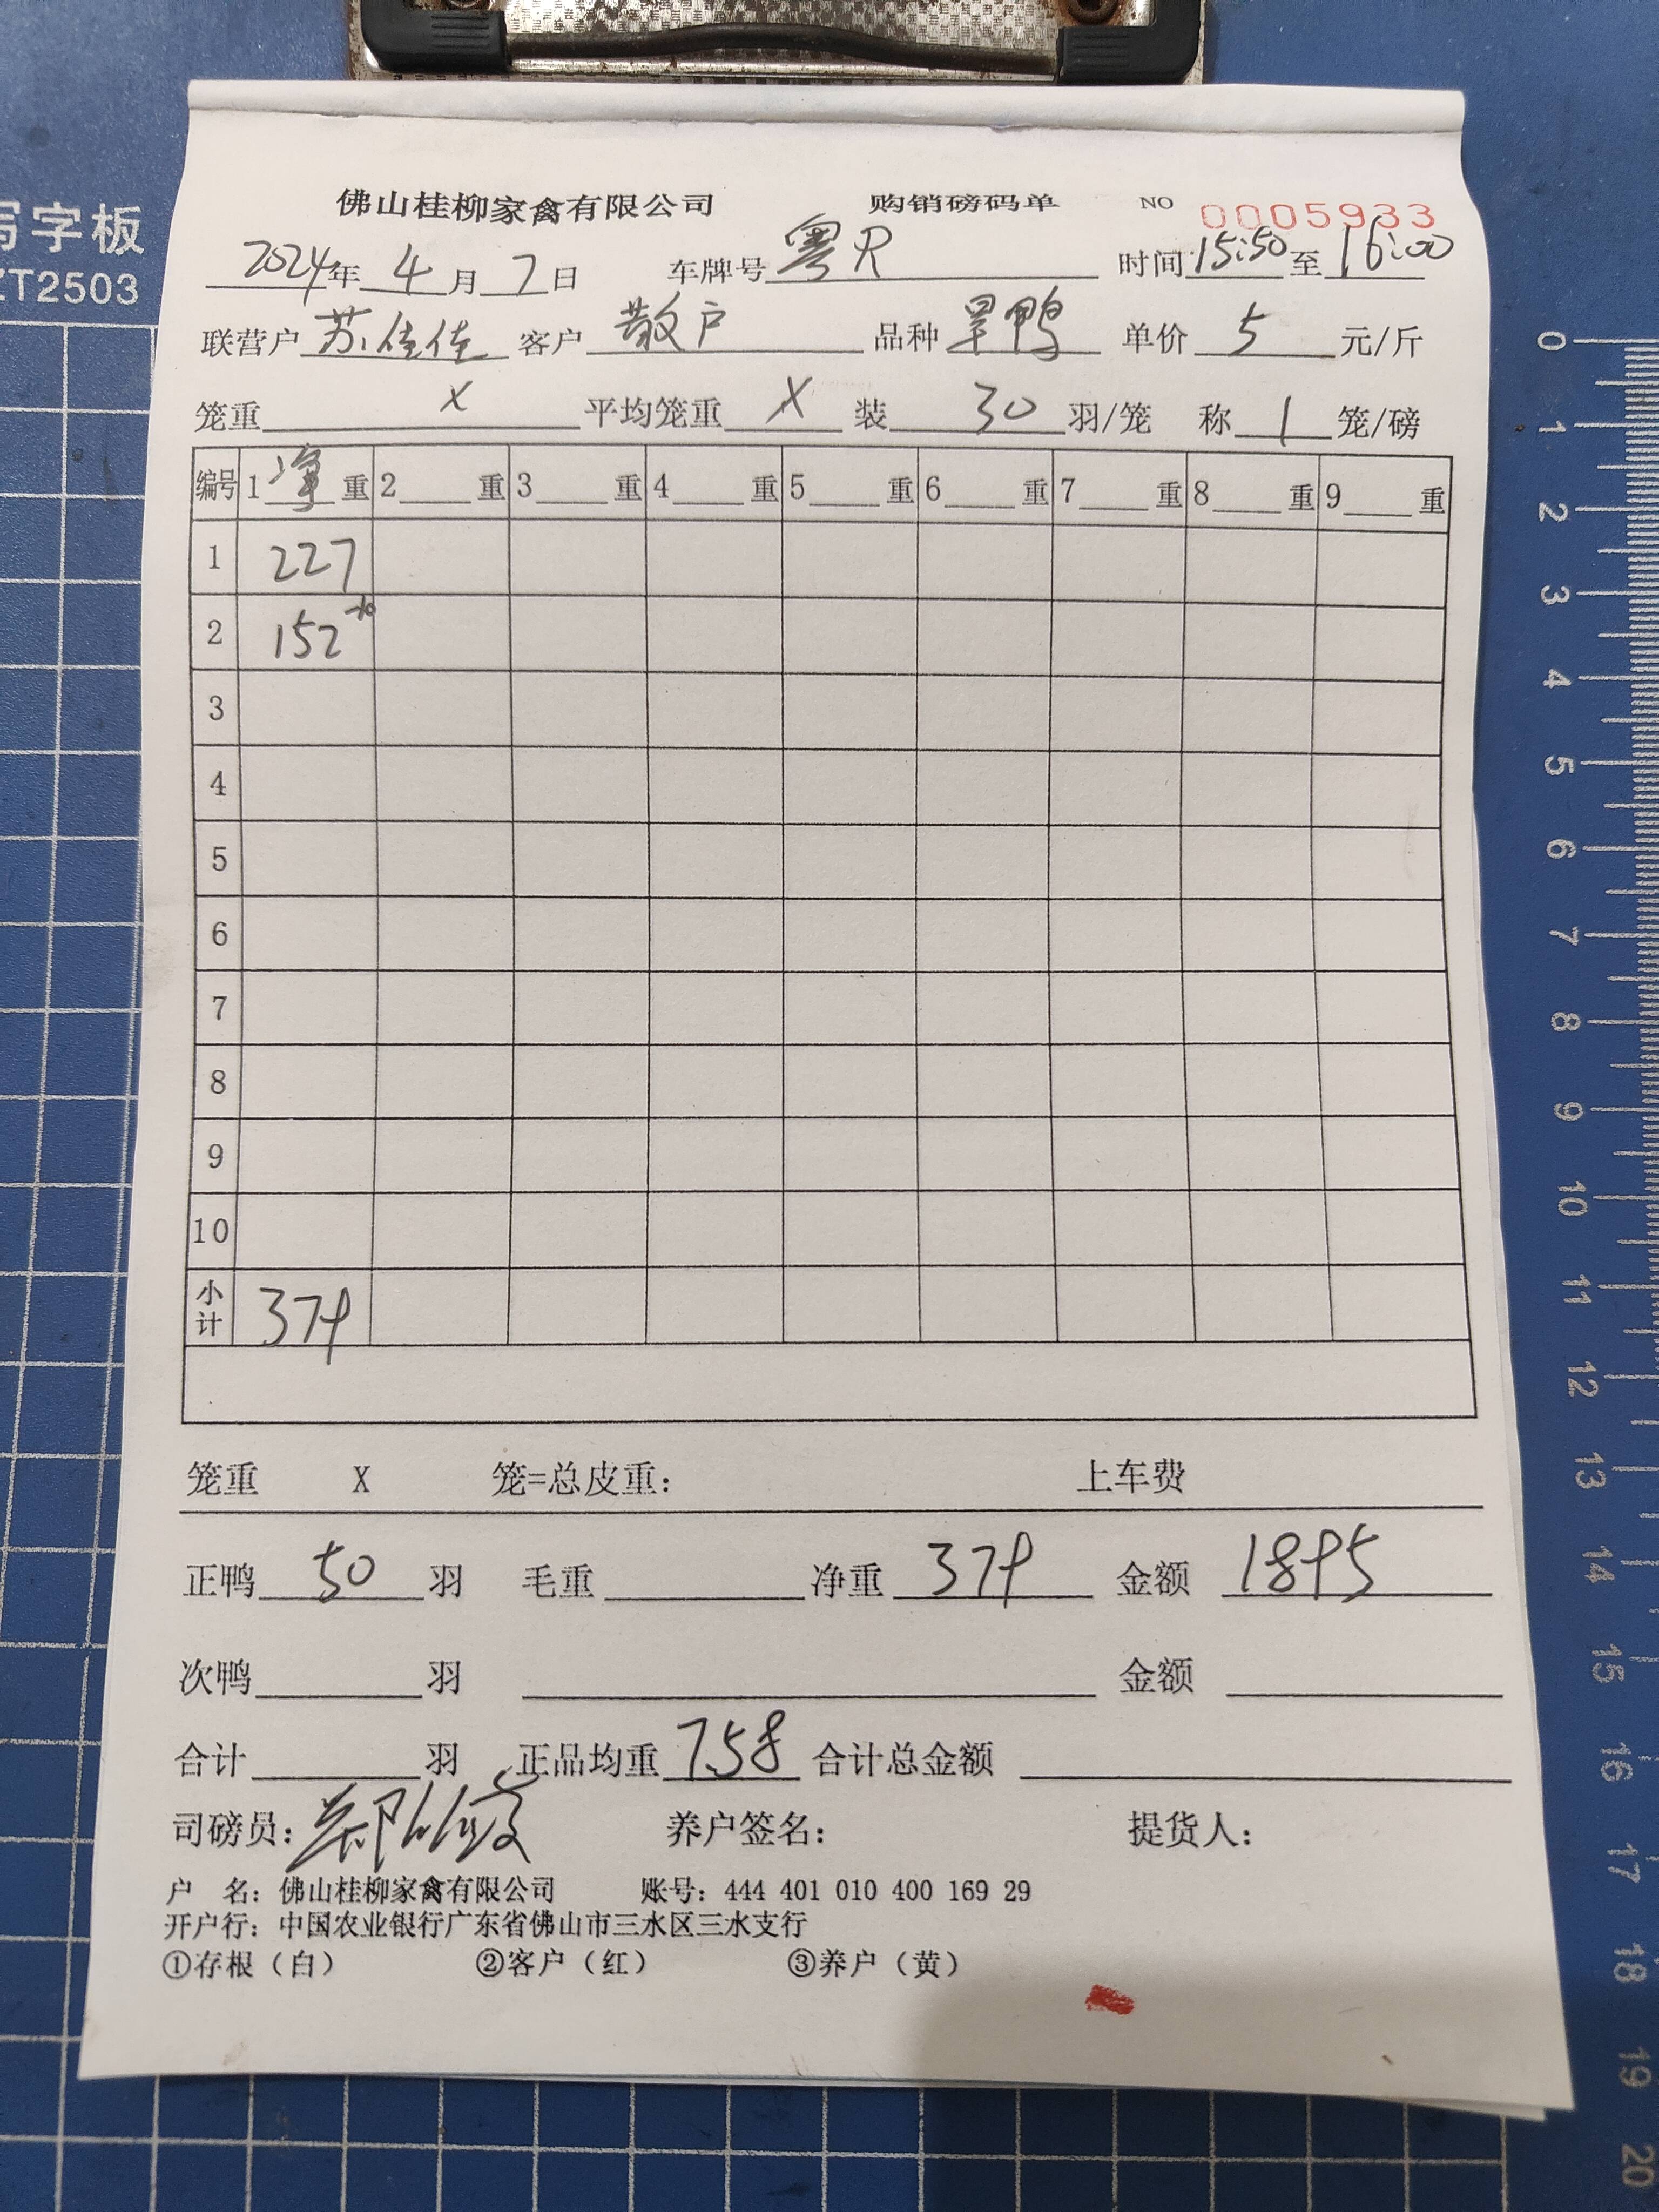 写字板
ZT2503
佛山桂柳家禽有限公司 购销磅码单 NO 0005933
2024年 4月 7日 车牌号 粤R 时间 15:50 至 16:00
联营户 苏佳佳 客户 散户 品种 旱鸭 单价 5 元/斤
笼重 X 平均笼重 X 装 30 羽/笼 称 1 笼/磅
编号 1 净 重 2 重 3 重 4 重 5 重 6 重 7 重 8 重 9 重
1 227
2 152
3
4
5
6
7
8
9
10
小计 379
笼重 X 笼=总皮重： 上车费
正鸭 50 羽 毛重 净重 379 金额 1895
次鸭 羽 金额
合计 羽 正品均重 7.58 合计总金额
司磅员： 养户签名： 提货人：
户 名：佛山桂柳家禽有限公司 账号：444 401 010 400 169 29
开户行：中国农业银行广东省佛山市三水区三水支行
①存根（白） ②客户（红） ③养户（黄）
0
1
2
3
4
5
6
7
8
9
10
11
12
13
14
15
16
17
18
19
20